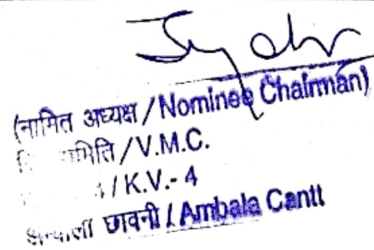 (नामित अध्यक्ष / Nominee Chairman)
/ V.M.C.
/ K.V.- 4
छावनी / Ambala Cantt